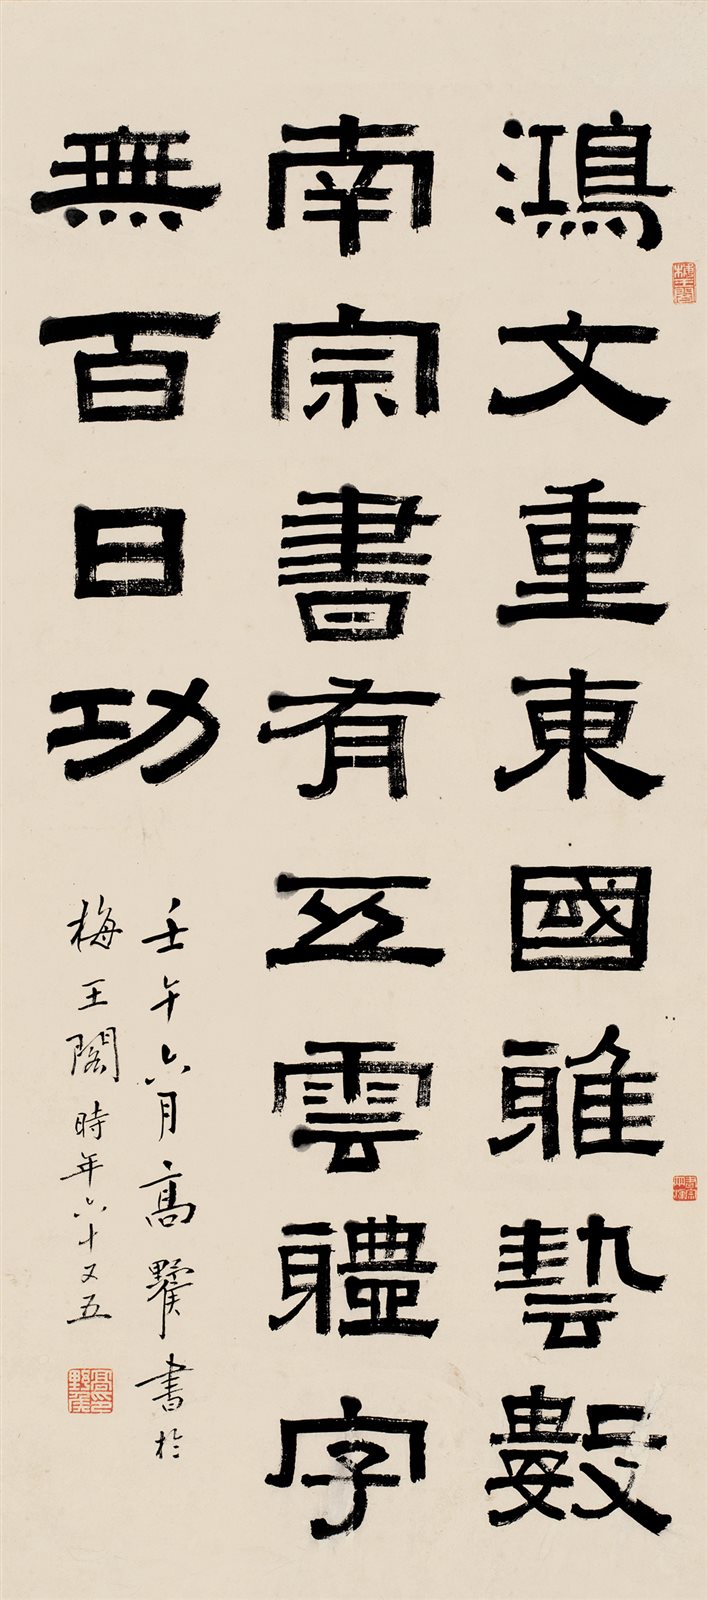 鴻文重東國雅藝數
南宗書有五雲體字
無百日功
壬午六月高野侯書於
梅王閣時年六十又五
梅王閣